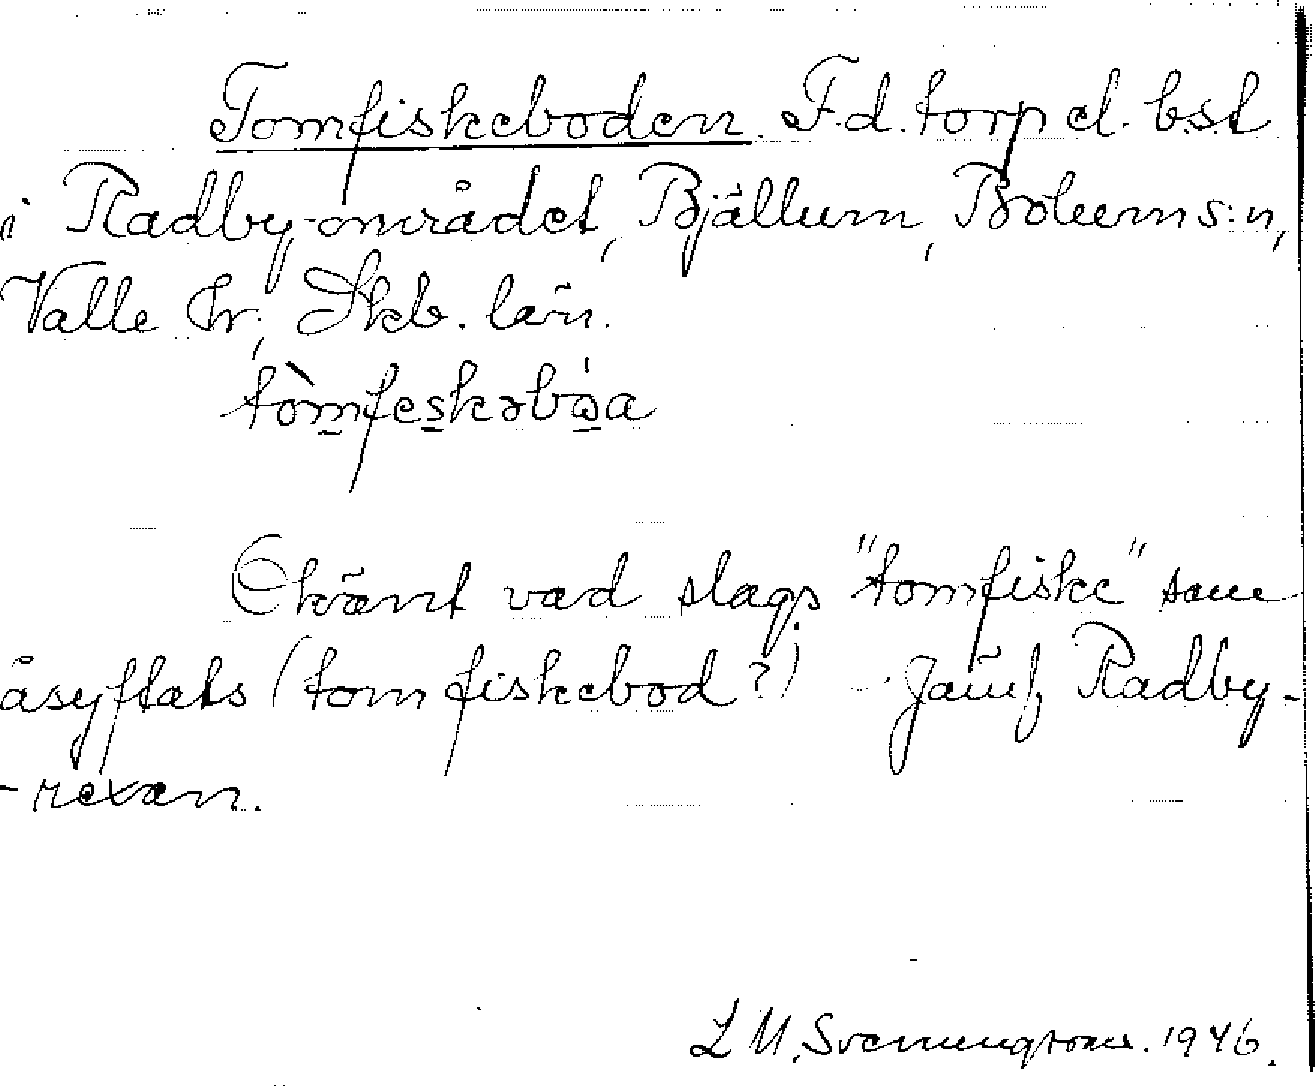 Tomfiskeboden. F.d. torp el. bst
i Radby-området, Bjällum, Bolums:n,
Valle hr, Skb. län.
tòmfeskəbóa
Okänt vad slags "tomfiske" som
åsyftats (tom fiskebod?) - Jämf Radby-
-rexan.
L M. Svenungsson. 1946.